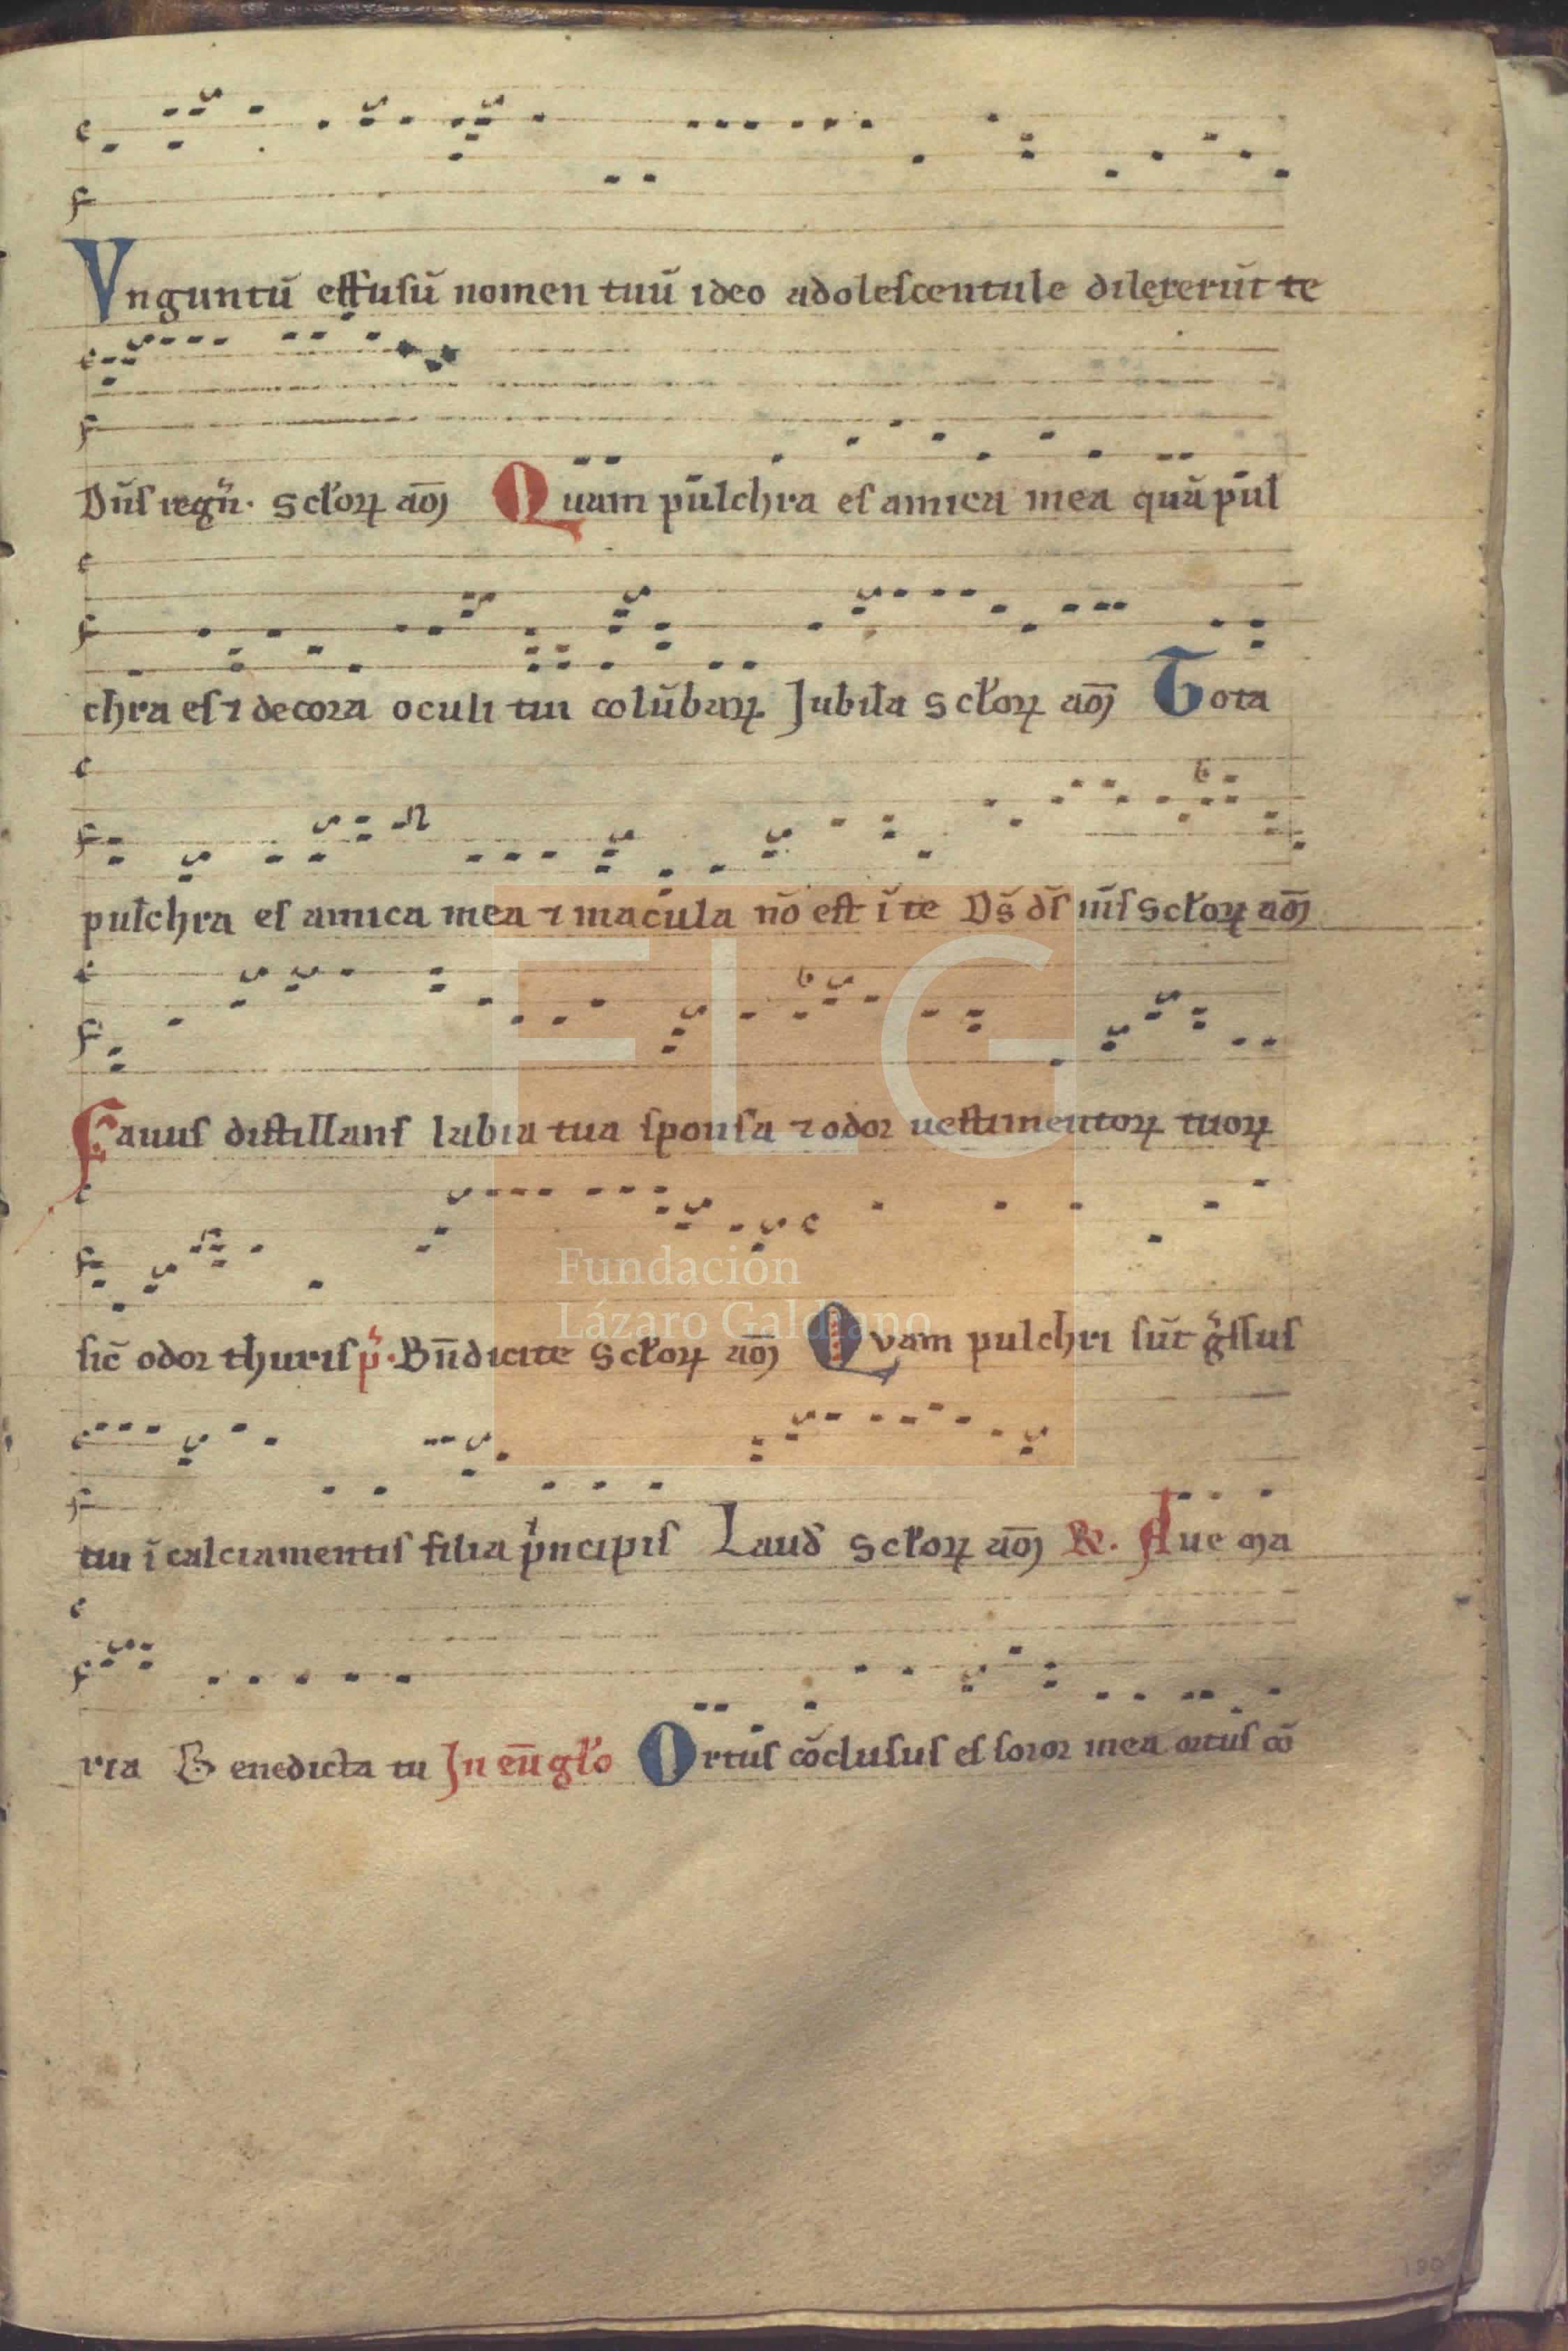 Vnguntū effusū nomen tuū ideo adolescentule dilexerūt te
Dn̄s regn̄. Scƚoꝝ am̄ Quam pulchra es amica mea quā pul
chra es ⁊ decora oculi tui colūbaꝝ Jubila scƚoꝝ am̄ Tota
pulchra es amica mea ⁊ macula nō est ī te Ds̄ ds̄ ms̄ scƚoꝝ am̄
Fauus distillans labia tua sponsa ⁊ odor uestimentoꝝ tuoꝝ
sic̄ odor thuris p̄. Bn̄dicite scƚoꝝ am̄ Quam pulchri sūt gͥssus
tui ī calciamentis filia pͥncipis Laud̄ scƚoꝝ am̄ ℟. Aue ma
ria Benedicta tu In eūgƚo Ortus cōclusus es soror mea ortus cō
FLG
Fundación
Lázaro Galdiano
190